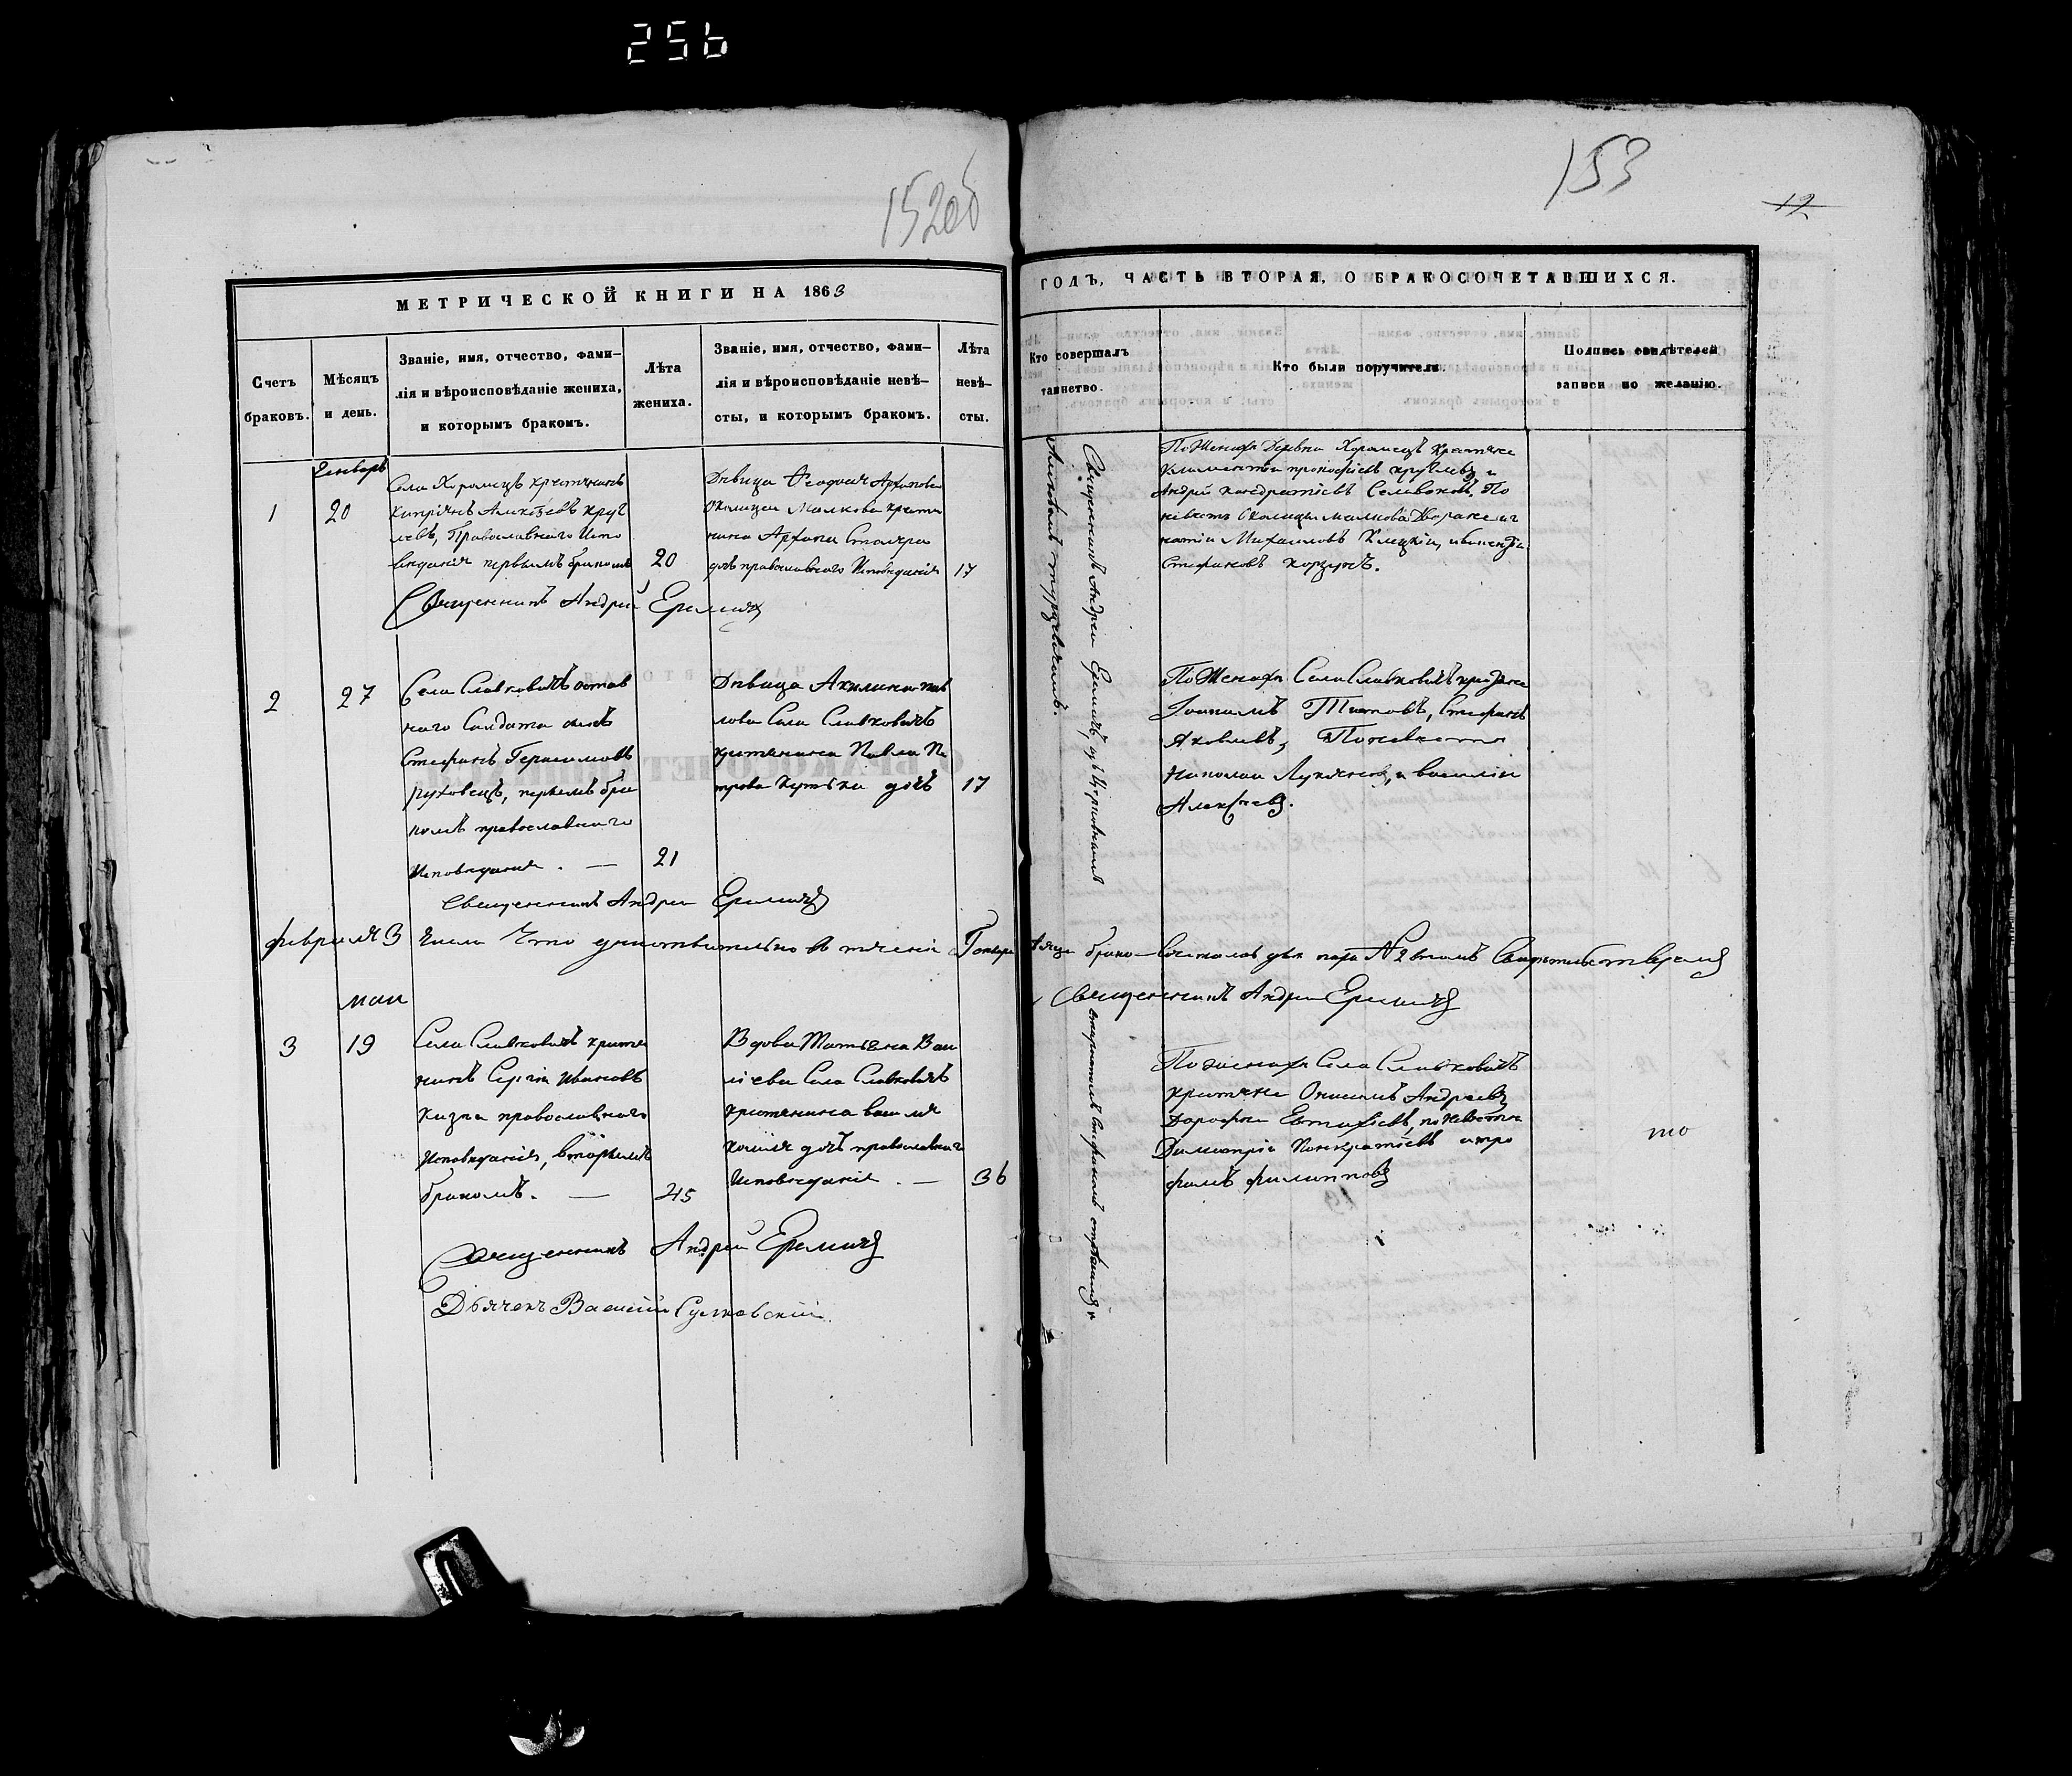 256
152об
153
12
МЕТРИЧЕСКОЙ КНИГИ НА 1863
ГОДЪ, ЧАСТЬ ВТОРАЯ, О БРАКОСОЧЕТАВШИХСЯ.
Счетъ
браковъ.
Мѣсяцъ
и день.
Званіе, имя, отчество, фами-
лія и вѣроисповѣданіе жениха,
и которымъ бракомъ.
Лѣта
жениха.
Званіе, имя, отчество, фами-
лія и вѣроисповѣданіе невѣ-
сты, и которымъ бракомъ.
Лѣта
невѣ-
сты.
Кто совершалъ
таинство.
Кто были поручители.
Подпись свидѣтелей
записи по желанію.
Генварь
1
20
Села Хоромецъ крестьянинъ
Кипріянъ Алексѣевъ Круг
левъ, Православнаго Испо
вѣданія первымъ бракомъ
20
Дѣвица Феодосія Архипова
Околицы Малкова крестья
нина Архипа Столяра
дочь православнаго Исповѣданія
17
Священникъ Андрей Еремичъ
По Женихѣ Деревни Хоромецъ крестьяне
Климентій прокофіевъ круглевъ и
Андрей кондратіевъ Селивоновъ, По
невѣстѣ Околицы малкова Дворане иг
натій Михаиловъ Клецкій, и викентій
Стефановъ Корзунъ.
Священникъ Андрей Еремичъ, съ Церковникомъ
2
27
Села Славковичъ отстав
наго Солдата сынъ
Стефанъ Герасимовъ
Руховецъ, первымъ бра
комъ православнаго
Исповѣданія. —
21
Дѣвица Акилина пав
лова Села Славковичъ
крестьянина Павла Пе
трова дочь
17
Священникъ Андрей Еремичъ
По Женихѣ Села Славковичъ крестьяне
Іоакимъ Титовъ, Стефанъ
Яковлевъ, По невѣстѣ
Николай Лукяновъ, и василій
Алексѣевъ.
февраля 3 числа Что дѣйствительно въ теченіи Генваря мѣсяца брако-сочеталось двѣ пары №2 въ томъ Свидѣтельствуемъ
Священникъ Андрей Еремичъ
маи
3
19
Села Славковичъ крестья
нинъ Сергій Ивановъ
Козла православнаго
Исповѣданія, вторымъ
бракомъ. —
45
Вдова Татьяна Васи
ліева Села Славковичъ
крестьянина василя
дочь православнаго
Исповѣданія. —
36
По женихѣ Села Славковичъ
крестьяне Онисимъ Андреевъ
Дорофей Евтихіевъ, по невѣстѣ
Димитрій Кондратіевъ и тро
фимъ филиповъ
Священникъ Андрей Еремичъ
Дьячекъ Василій Сулковскій.